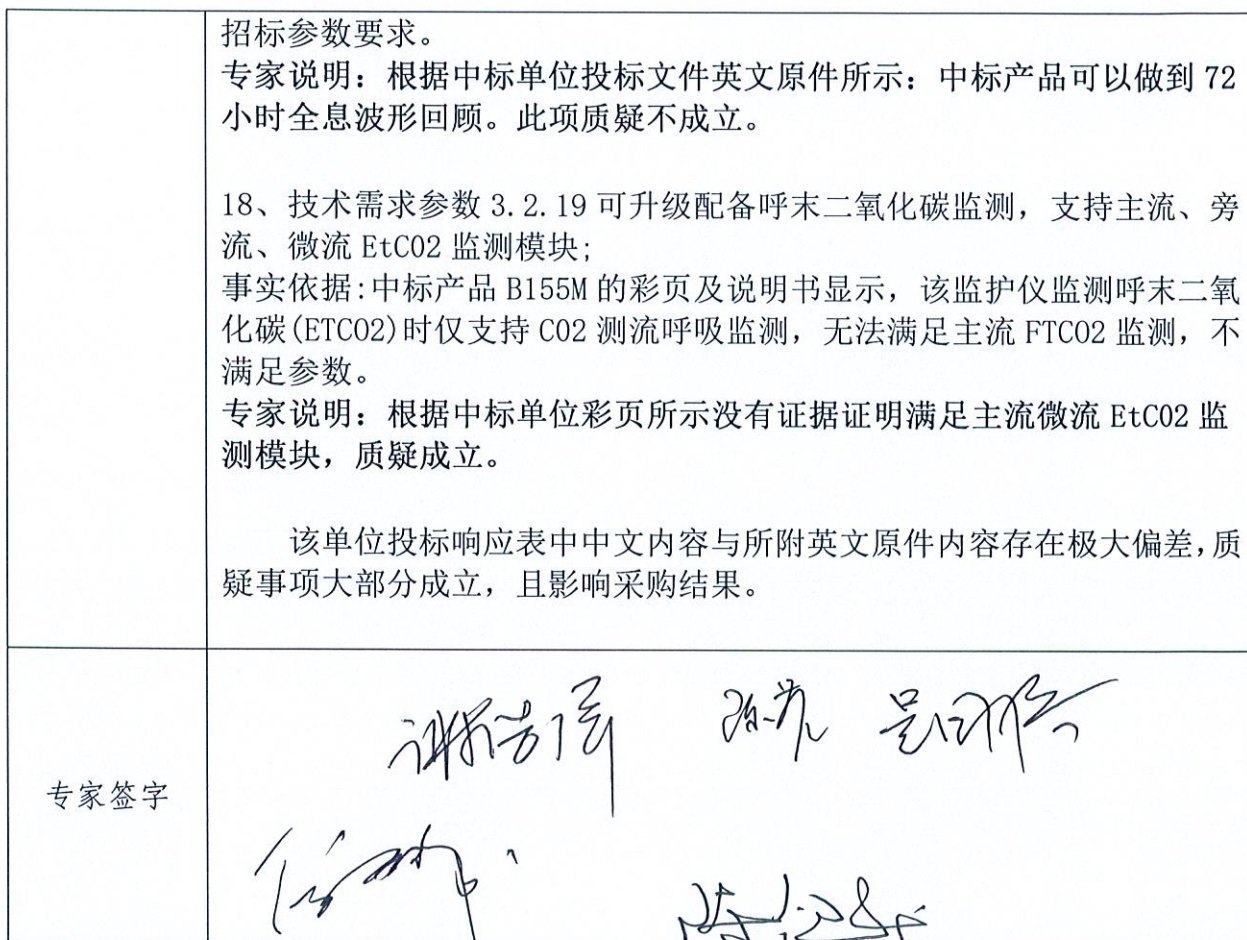 招标参数要求。
专家说明：根据中标单位投标文件英文原件所示：中标产品可以做到 72
小时全息波形回顾。此项质疑不成立。
18、技术需求参数 3.2.19 可升级配备呼末二氧化碳监测，支持主流、旁
流、微流 EtCO2 监测模块；
事实依据：中标产品 B155M 的彩页及说明书显示，该监护仪监测呼末二氧
化碳(ETCO2)时仅支持 CO2 测流呼吸监测，无法满足主流 FTCO2 监测，不
满足参数。
专家说明：根据中标单位彩页所示没有证据证明满足主流微流 EtCO2 监
测模块，质疑成立。
该单位投标响应表中中文内容与所附英文原件内容存在极大偏差，质
疑事项大部分成立，且影响采购结果。
专家签字